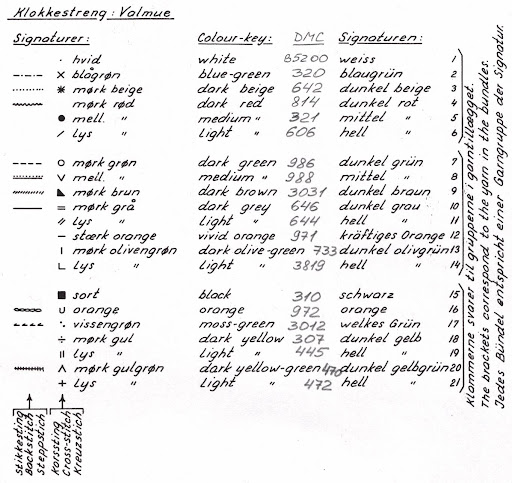 Klokkestreng: Valmue
Signaturer: Colour-key: DMC Signaturen:
· hvid white B5200 weiss 1
× blågrøn blue-green 320 blaugrün 2
✱ mørk beige dark beige 642 dunkel beige 3
mørk rød dark red 814 dunkel rot 4
● mell. " medium " 321 mittel " 5
/ lys " light " 606 hell " 6
○ mørk grøn dark green 986 dunkel grün 7
V mell. " medium " 988 mittel " 8
◣ mørk brun dark brown 3031 dunkel braun 9
= mørk grå dark grey 646 dunkel grau 10
〃 lys " light " 644 hell " 11
– stærk orange vivid orange 971 kräftiges Orange 12
ı mørk olivengrøn dark olive-green 733 dunkel olivgrün 13
∟ lys " light " 3819 hell " 14
■ sort black 310 schwarz 15
∪ orange orange 972 orange 16
⋱ vissengrøn moss-green 3012 welkes Grün 17
÷ mørk gul dark yellow 307 dunkel gelb 18
ıı lys " light " 445 hell " 19
∧ mørk gulgrøn dark yellow-green 470 dunkel gelbgrün 20
+ lys " light " 472 hell " 21
Stikkesting
Backstitch
Steppstich
Korssting
Cross-stitch
Kreuzstich
Klammerne svarer til grupperne i garntillægget.
The brackets correspond to the yarn in the bundles.
Jedes Bündel entspricht einer Garngruppe der Signatur.